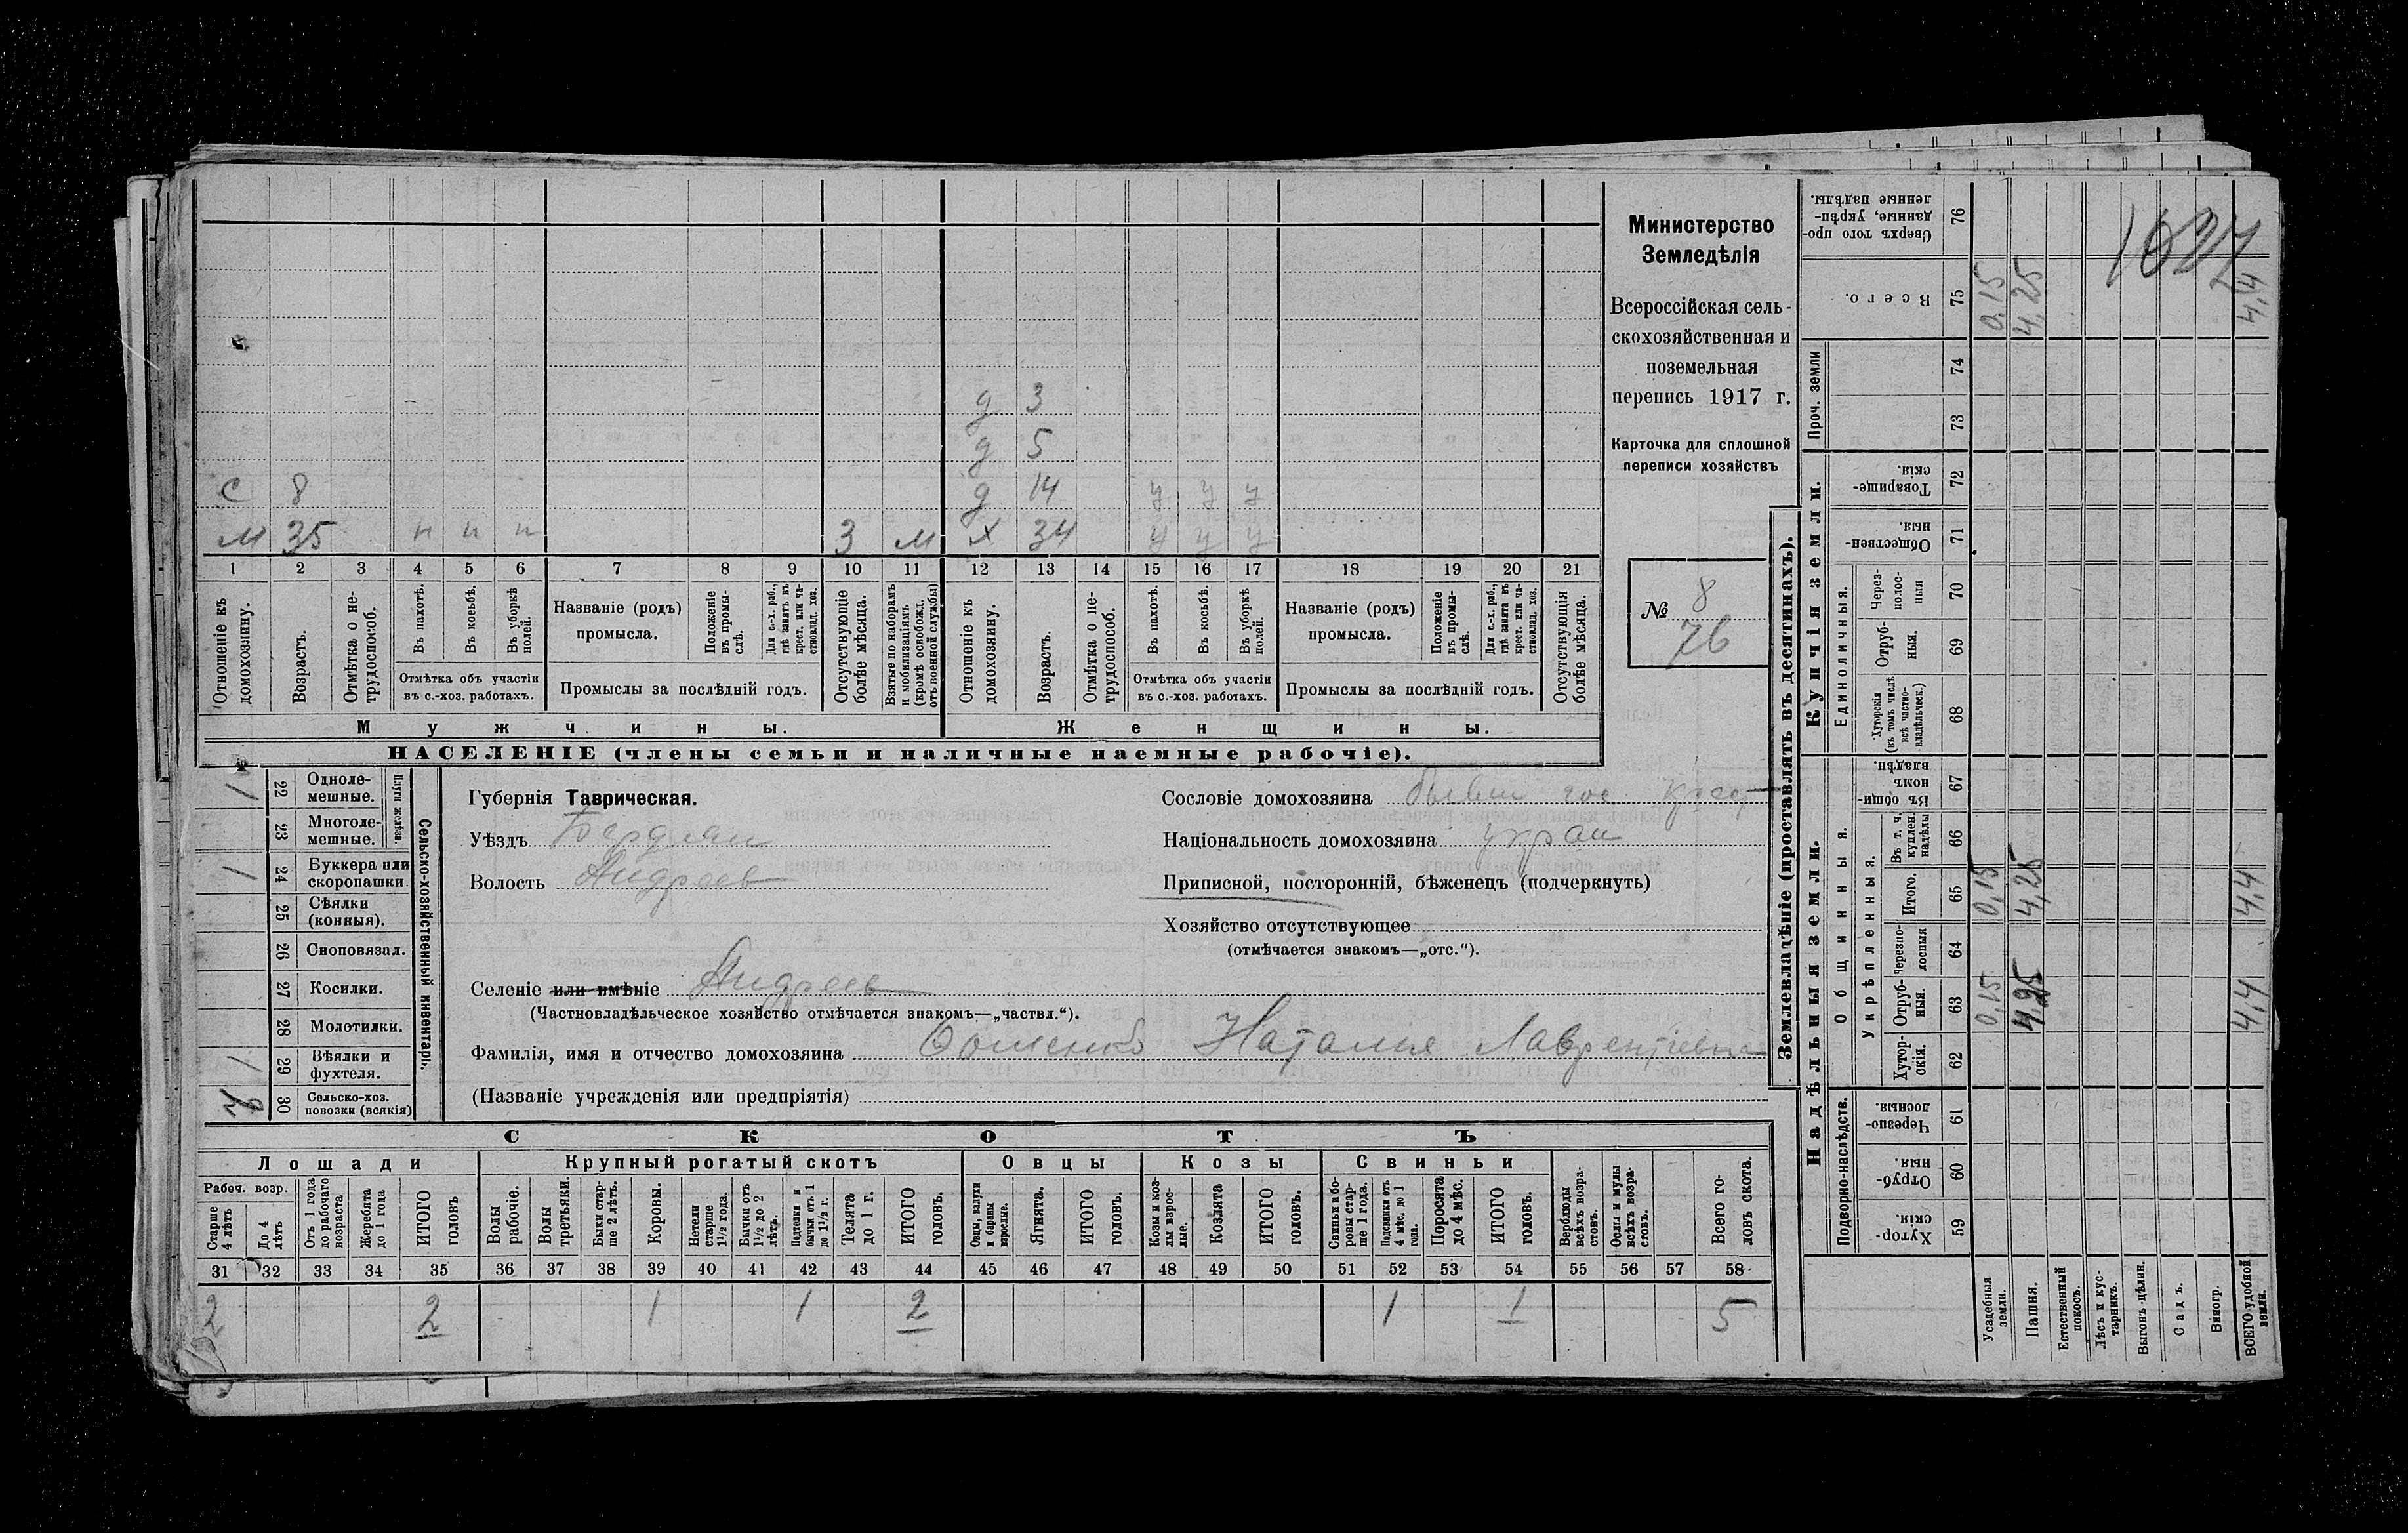 Министерство
Земледѣлія
Всероссійская сель-
скохозяйственная и
поземельная
перепись 1917 г.
Карточка для сплошной
переписи хозяйствъ
№ 8
76
д 3
д 5
С 8 д 14 у у у
М 35 п п п 3 М Х 34 у у у
1 2 3 4 5 6 7 8 9 10 11 12 13 14 15 16 17 18 19 20 21
Отношеніе къ домохозяину.
Возрастъ.
Отмѣтка о не-трудоспособ.
Въ пахотѣ.
Въ косьбѣ.
Въ уборкѣ полей.
Отмѣтка объ участіи въ с.-хоз. работахъ.
Названіе (родъ) промысла.
Положеніе въ промы-слѣ.
Для с.-х. раб., гдѣ занятъ въ крест. или ча-стновлад. хоз.
Промыслы за послѣдній годъ.
Отсутствующіе болѣе мѣсяца.
Взятые по наборамъ и мобилизаціямъ (кромѣ освобожд. отъ военной службы)
Отношеніе къ домохозяину.
Возрастъ.
Отмѣтка о не-трудоспособ.
Въ пахотѣ.
Въ косьбѣ.
Въ уборкѣ полей.
Отмѣтка объ участіи въ с.-хоз. работахъ.
Названіе (родъ) промысла.
Положеніе въ промы-слѣ.
Для с.-х. раб., гдѣ занята въ крест. или ча-стновлад. хоз.
Промыслы за послѣдній годъ.
Отсутствующія болѣе мѣсяца.
Мужчины. Женщины.
НАСЕЛЕНІЕ (члены семьи и наличные наемные рабочіе).
Сельско-хозяйственный инвентарь.
Плуги желѣзн.
1 22 Одноле-мешные.
23 Многоле-мешные.
1 24 Буккера или скоропашки.
25 Сѣялки (конныя).
26 Сноповязал.
27 Косилки.
28 Молотилки.
1 29 Вѣялки и фухтеля.
30 Сельско-хоз. повозки (всякія)
Губернія Таврическая.
Уѣздъ Бердян
Волость Андреев
Селеніе или имѣніе Андреев
(Частновладѣльческое хозяйство отмѣчается знакомъ—„частвл.“).
Фамилія, имя и отчество домохозяина Наталия Лаврентіевна
(Названіе учрежденія или предпріятія)
Сословіе домохозяина бывш гос крест
Національность домохозяина украи
Приписной, посторонній, бѣженецъ (подчеркнуть)
Хозяйство отсутствующее
(отмѣчается знакомъ—„отс.“).
СКОТЪ
Лошади Крупный рогатый скотъ Овцы Козы Свиньи
Рабоч. возр.
Старше 4 лѣтъ
До 4 лѣтъ
Отъ 1 года до рабочаго возраста
Жеребята до 1 года
ИТОГО головъ
Волы рабочіе.
Волы третьяки.
Быки стар-ше 2 лѣтъ.
Коровы.
Нетели старше 1½ года.
Бычки отъ 1½ до 2 лѣтъ.
Подтелки и бычки отъ 1 до 1½ г.
Телята до 1 г.
ИТОГО головъ.
Овцы, валухи и бараны взрослые.
Ягнята.
ИТОГО головъ.
Козы и коз-лы взрос-лые.
Козлята
ИТОГО головъ.
Свиньи и бо-ровы стар-ше 1 года.
Подсвинки отъ 4 мѣс. до 1 года.
Поросята до 4 мѣс.
ИТОГО головъ.
Верблюды всѣхъ возра-стовъ.
Ослы и мулы всѣхъ возра-стовъ.
Всего го-ловъ скота.
31 32 33 34 35 36 37 38 39 40 41 42 43 44 45 46 47 48 49 50 51 52 53 54 55 56 57 58
2 2 1 1 2 1 1 5
Землевладѣніе (проставлять въ десятинахъ).
Надѣльныя земли. Купчія земли. Проч. земли
Подворно-наслѣдств.
Общинныя.
Укрѣпленныя.
Единоличныя.
Хутор-скія. 59
Отруб-ныя. 60
Черезпо-лосныя. 61
Хутор-скія. 62
Отруб-ныя. 63
Черезпо-лосныя 64
Итого. 65
Въ т. ч. куплен. надѣлы 66
Въ общи-номъ владѣн. 67
Хуторскія (въ томъ числѣ всѣ частно-владѣльческ.) 68
Отруб-ныя. 69
Через-полос-ныя 70
Обществен-ныя. 71
Товарище-скія. 72
73
74
Всего. 75
Сверхъ того про-данные, укрѣп-ленные надѣлы. 76
Усадебныя земли. 0,15 0,15 0,15
Пашня. 4,25 4,25 4,25
Естественный покосъ.
Лѣсъ и кус-тарникъ.
Выгонъ-цѣлин.
Садъ.
Виногр.
ВСЕГО удобной земли. 4,4 4,4 4,4